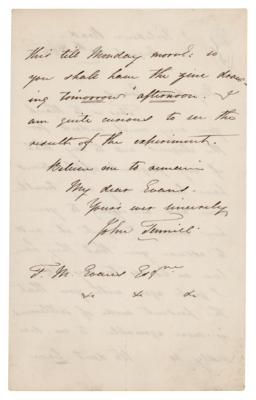 this till Monday morng: so
you shall have the zinc draw-
ing tomorrow afternoon. I
am quite curious to see the
result of the experiment.
Believe me to remain
My dear Evans.
Yours ever sincerely
John Tenniel
F. M. Evans Esqre
x x x